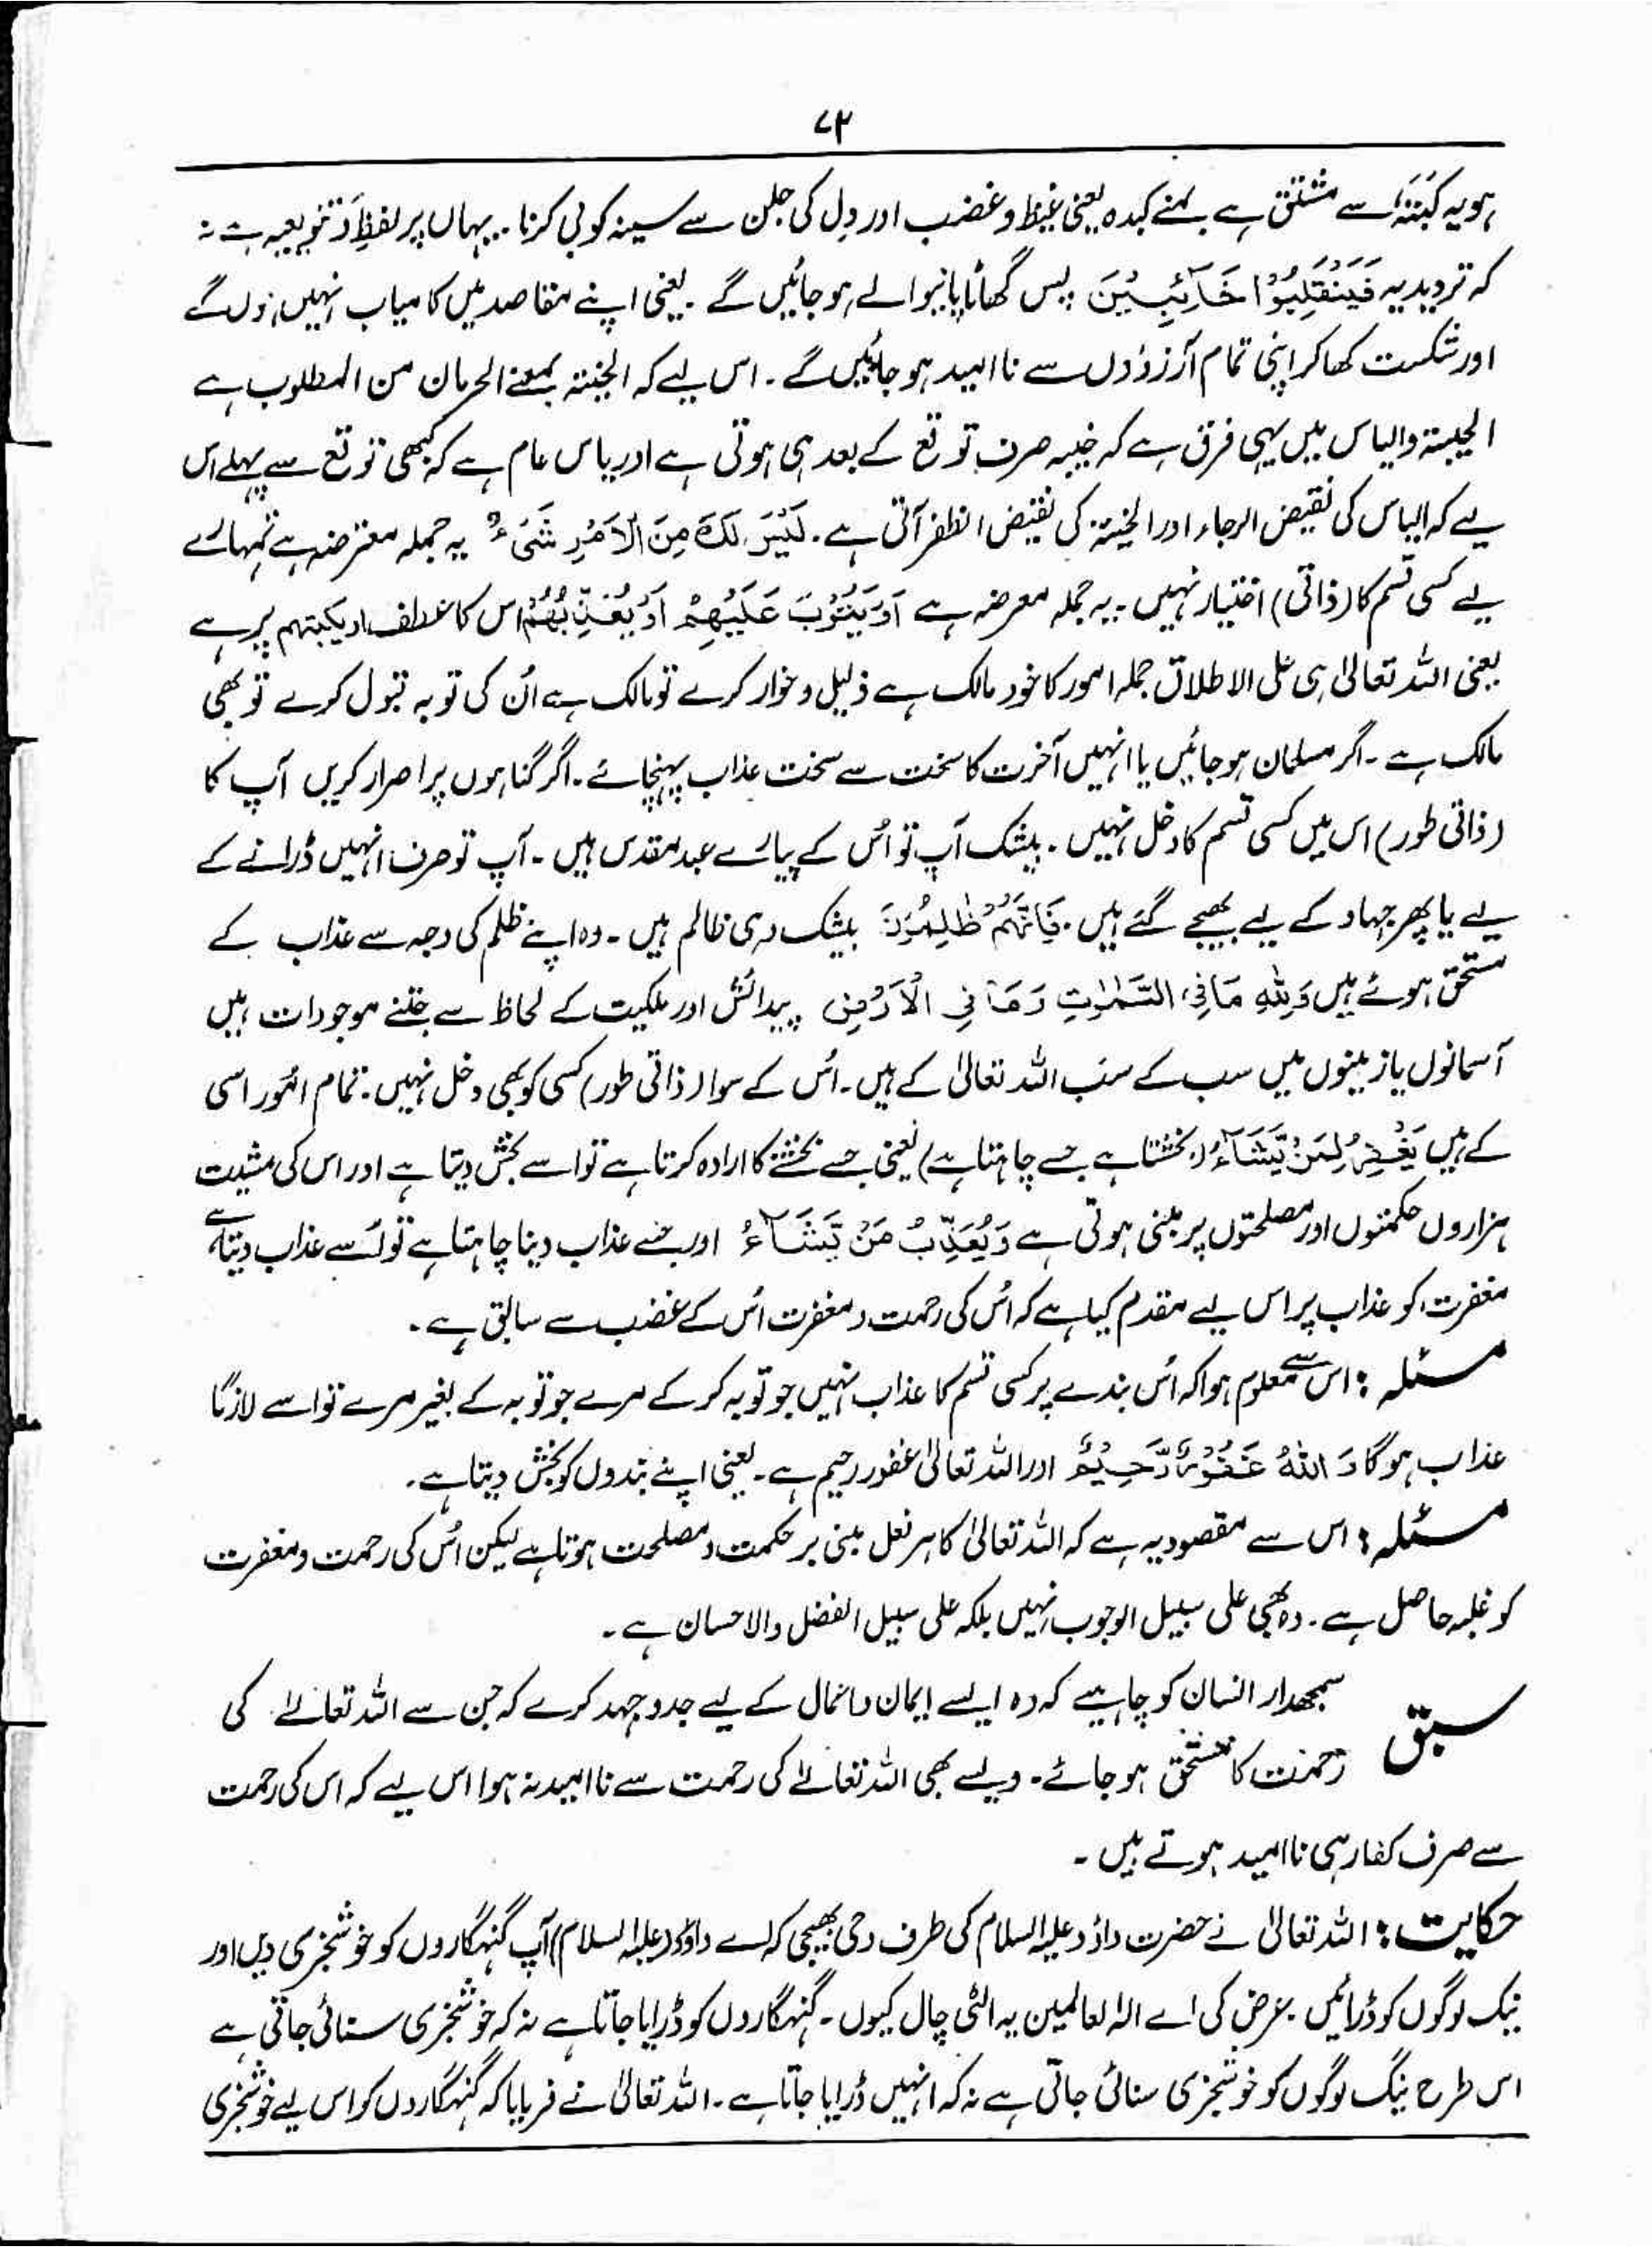 ۷۳
ہو یہ کَبَتَہُ سے مشتق ہے بمعنے کبدہ یعنی غیظ و غضب اور دِل کی جلن سے سینہ کوبی کرنا ۔ یہاں پر لفظِ اَوْ تنویعیہ ہے نہ
کہ تردیدیہ فَيَنْقَلِبُوْا خَآئِبِيْنَ پس گھاٹا پانیوالے ہو جائیں گے ۔ یعنی اپنے مقاصد میں کامیاب نہیں ہوں گے
اور شکست کھا کر اپنی تمام آرزوؤں سے نا امید ہو جائیں گے ۔ اس لیے کہ الخیبۃ بمعنے الحرمان من المطلوب ہے
الخیبۃ والیاس میں یہی فرق ہے کہ خیبہ صرف توقع کے بعد ہی ہوتی ہے اور یاس عام ہے کہ کبھی توقع سے پہلے اس
لیے کہ الیاس کی نقیض الرجاء اور الخیبۃ کی نقیض الظفر آتی ہے ۔ لَيْسَ لَكَ مِنَ الْاَمْرِ شَىْءٌ یہ جملہ معترضہ ہے تمہارے
لیے کسی قسم کا (ذاتی) اختیار نہیں ۔ یہ جملہ معرضہ ہے اَوْ يَتُوْبَ عَلَيْهِمْ اَوْ يُعَذِّبَهُمْ اس کا عطف او یکبتہم پر ہے
یعنی اللہ تعالیٰ ہی علی الاطلاق جملہ امور کا خود مالک ہے ذلیل و خوار کرے تو مالک ہے اُن کی توبہ قبول کرے تو بھی
مالک ہے ۔ اگر مسلمان ہو جائیں یا انہیں آخرت کا سخت سے سخت عذاب پہنچائے ۔ اگر گناہوں پر اصرار کریں آپ کا
(ذاتی طور) اس میں کسی قسم کا دخل نہیں ۔ بیشک آپ تو اُس کے پیارے عبد مقدس ہیں ۔ آپ تو صرف انہیں ڈرانے کے
لیے یا پھر جہاد کے لیے بھیجے گئے ہیں ۔ فَاِنَّهُمْ ظٰلِمُوْنَ بیشک وہی ظالم ہیں ۔ وہ اپنے ظلم کی وجہ سے عذاب کے
مستحق ہوئے ہیں وَلِلّٰهِ مَا فِى السَّمٰوٰتِ وَمَا فِى الْاَرْضِ پیدائش اور ملکیت کے لحاظ سے جتنے موجودات ہیں
آسمانوں یا زمینوں میں سب کے سب اللہ تعالیٰ کے ہیں ۔ اُس کے سوا (ذاتی طور) کسی کو بھی دخل نہیں ۔ تمام امُور اسی
کے ہیں يَغْفِرُ لِمَنْ يَّشَآءُ (بخشتا ہے جسے چاہتا ہے) یعنی جسے بخشنے کا ارادہ کرتا ہے تو اسے بخش دیتا ہے اور اس کی مشیت
ہزاروں حکمتوں اور مصلحتوں پر مبنی ہوتی ہے وَيُعَذِّبُ مَنْ يَّشَآءُ اور جسے عذاب دینا چاہتا ہے تو اُسے عذاب دیتا ہے
مغفرت کو عذاب پر اس لیے مقدم کیا ہے کہ اُس کی رحمت و مغفرت اُس کے غضب سے سابق ہے ۔
مسئلہ : اس سے معلوم ہوا کہ اُس بندے پر کسی قسم کا عذاب نہیں جو توبہ کر کے مرے جو توبہ کے بغیر مرے تو اسے لازمًا
عذاب ہو گا وَ اللّٰهُ غَفُوْرٌ رَّحِيْمٌ اور اللہ تعالیٰ غفور رحیم ہے ۔ یعنی اپنے بندوں کو بخش دیتا ہے ۔
مسئلہ : اس سے مقصود یہ ہے کہ اللہ تعالیٰ کا ہر فعل مبنی بر حکمت و مصلحت ہوتا ہے لیکن اُس کی رحمت و مغفرت
کو غلبہ حاصل ہے ۔ وہ بھی علی سبیل الوجوب نہیں بلکہ علی سبیل الفضل والاحسان ہے ۔
سبق سمجھدار انسان کو چاہیے کہ وہ ایسے ایمان و اعمال کے لیے جدوجہد کرے کہ جن سے اللہ تعالےٰ کی
رحمت کا مستحق ہو جائے ۔ ویسے بھی اللہ تعالےٰ کی رحمت سے نا امید نہ ہوا اس لیے کہ اس کی رحمت
سے صرف کفار ہی نا امید ہوتے ہیں ۔
حکایت : اللہ تعالیٰ نے حضرت داؤد علیہ السلام کی طرف وحی بھیجی کہ اے داؤد (علیہ السلام) آپ گنہگاروں کو خوشخبری دیں اور
نیک لوگوں کو ڈرائیں ۔ عرض کی اے الٰہ العالمین یہ الٹی چال کیوں ۔ گنہگاروں کو ڈرایا جاتا ہے نہ کہ خوشخبری سنائی جاتی ہے
اس طرح نیک لوگوں کو خوشخبری سنائی جاتی ہے نہ کہ انہیں ڈرایا جاتا ہے ۔ اللہ تعالیٰ نے فرمایا کہ گنہگاروں کو اس لیے خوشخبری